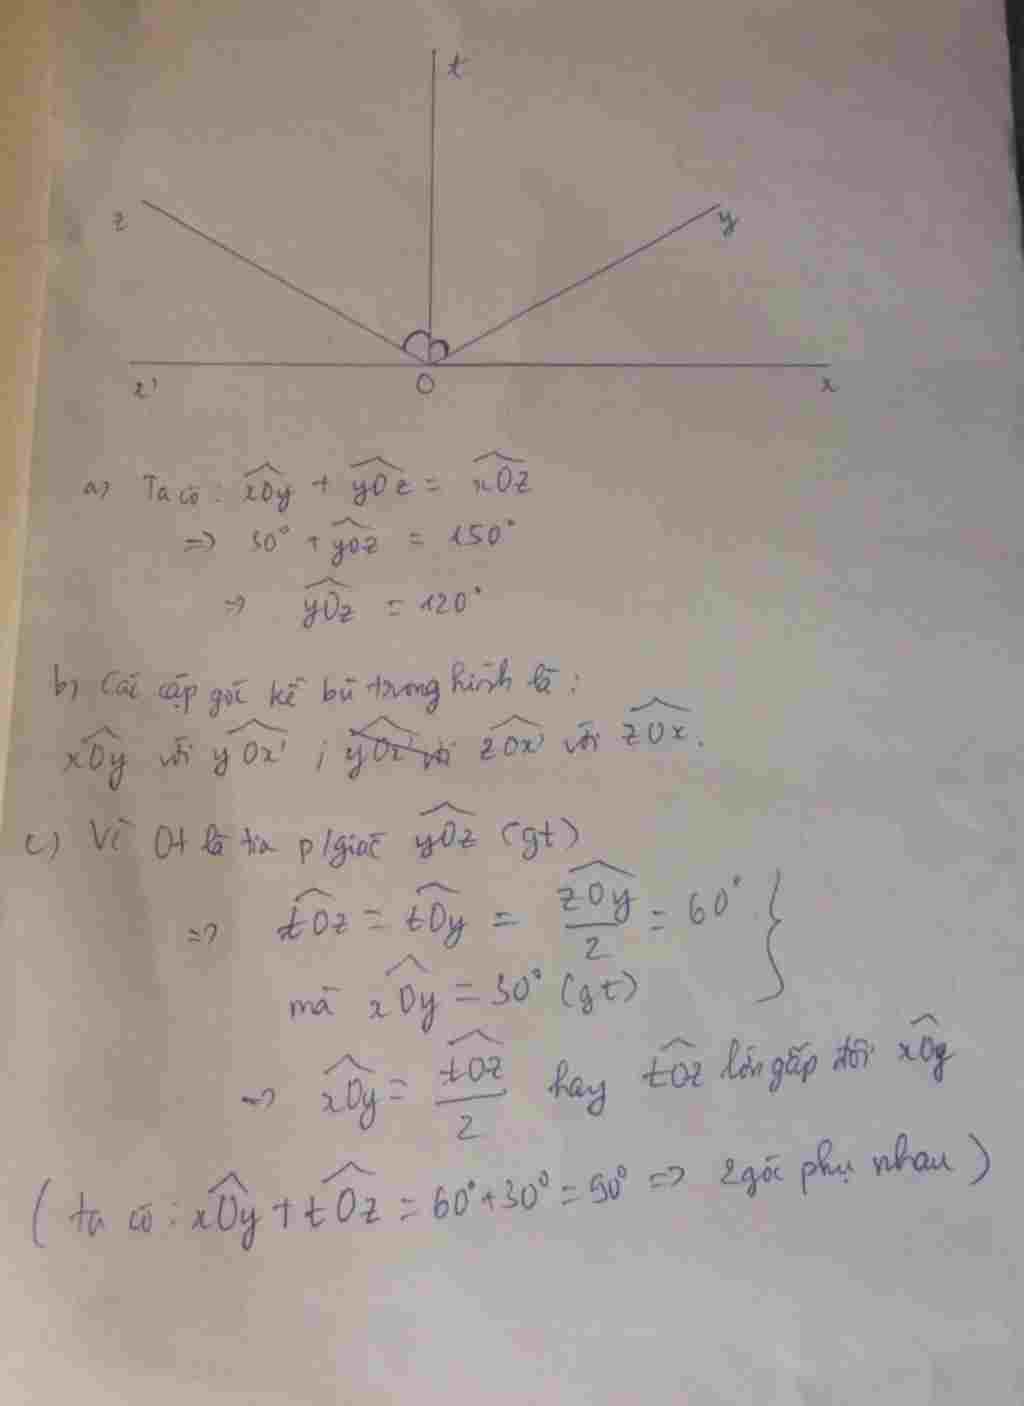 t
z
y
x'
O
x
a) Ta có: xOy + yOz = xOz
=> 30° + yOz = 150°
=> yOz = 120°
b) Các cặp góc kề bù trong hình là:
xOy với yOx' ; zOx' với zOx.
c) Vì Ot là tia p/giác yOz (gt)
=> tOz = tOy = zOy/2 = 60°
mà xOy = 30° (gt)
=> xOy = tOz/2 hay tOz lớn gấp đôi xOy
(ta có: xOy + tOz = 60° + 30° = 90° => 2 góc phụ nhau)